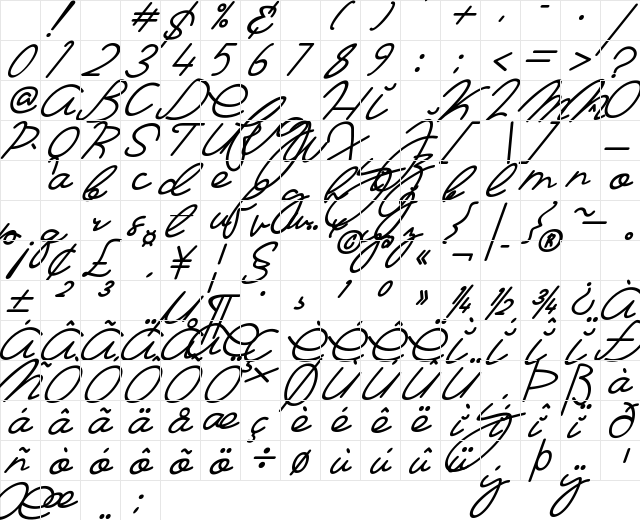 ! # $ % & ( ) + , - . /
0 1 2 3 4 5 6 7 8 9 : ; < = > ?
@ A B C D E F G H I J K L M N O
P Q R S T U V W X Y Z [ \ ] _
a b c d e f g h i j k l m n o
p q r s t u v w x y z { | } ~
¡ ¢ £ ¤ ¥ ¦ § © « ¬ - ® °
± ² ³ µ ¶ · ¸ ¹ º » ¼ ½ ¾ ¿ À
Á Â Ã Ä Å Æ Ç È É Ê Ë Ì Í Î Ï Ð
Ñ Ò Ó Ô Õ Ö × Ø Ù Ú Û Ü Ý Þ ß à
á â ã ä å æ ç è é ê ë ì í î ï ð
ñ ò ó ô õ ö ÷ ø ù ú û ü ý þ ÿ ı
Œ œ ¨ ;